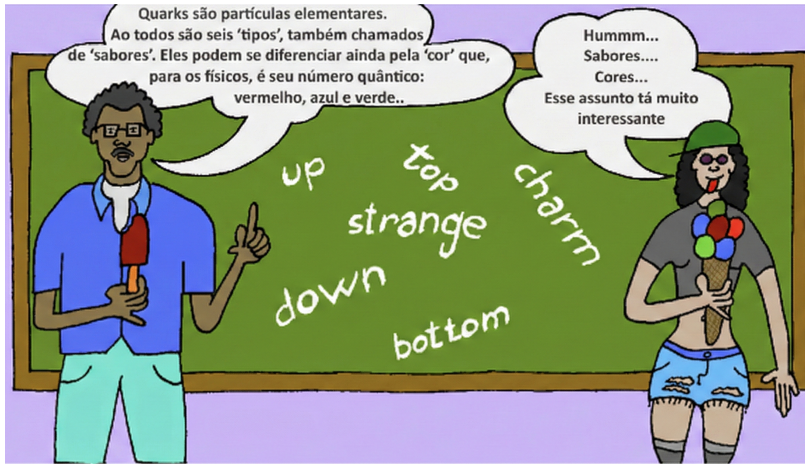 Quarks são partículas elementares.
Ao todos são seis ‘tipos’, também chamados
de ‘sabores’. Eles podem se diferenciar ainda pela ‘cor’ que,
para os físicos, é seu número quântico:
vermelho, azul e verde..
Hummm...
Sabores....
Cores...
Esse assunto tá muito
interessante
up
top
charm
strange
down
bottom